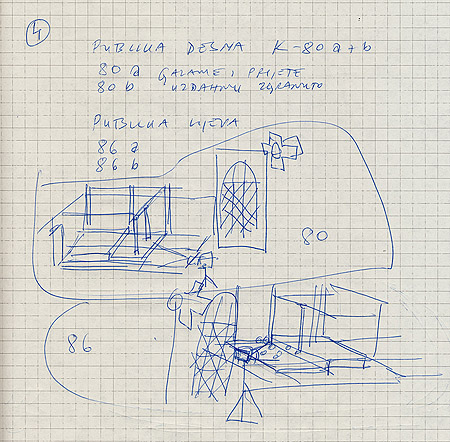 4
PUBLIKA DESNA K-80 a+b
80 a GALAME I PRIJETE
80 b UZDAHNU ZGRANUTO
PUBLIKA LIJEVA
86 a
86 b
80
86